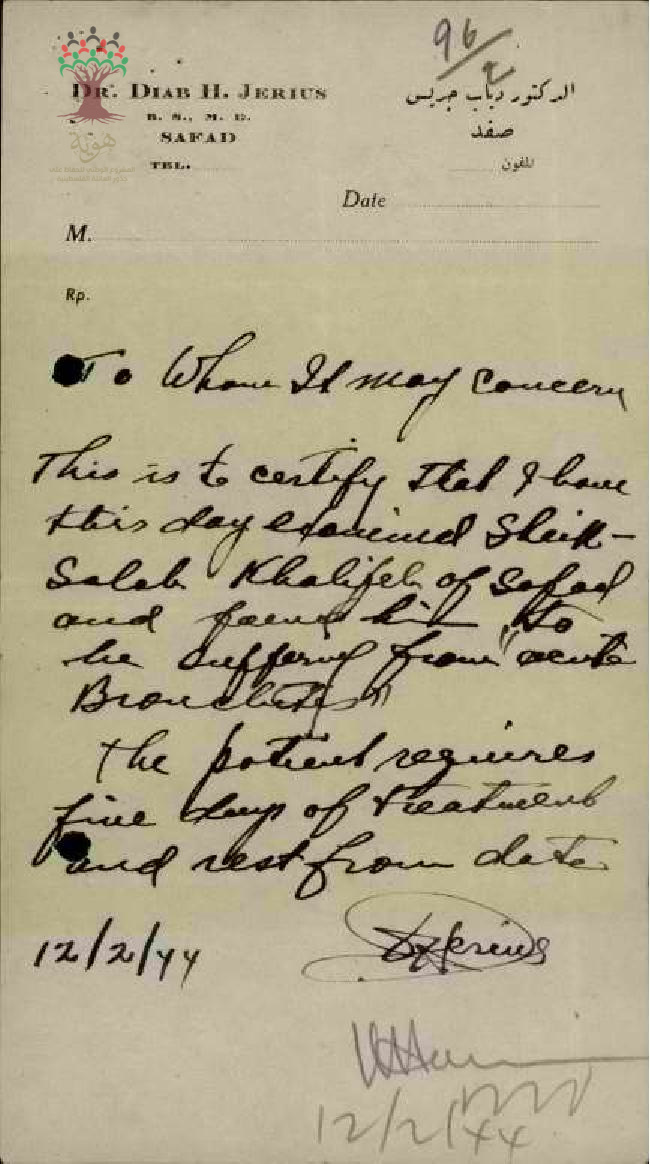 96/2
DR. DIAB H. JERIUS
B. S., M. D.
SAFAD
TEL.
الدكتور دياب جريس
صفد
تلفون
هوية
Date
M.
Rp.
To Whom It may Concern
This is to certify that I have
this day examined Sheik-
Salah Khalifeh of Safad
and found him to
be suffering from "acute
Bronchitis"
The patient requires
five days of treatment
and rest from date
12/2/44
DHJerius
12/2/44